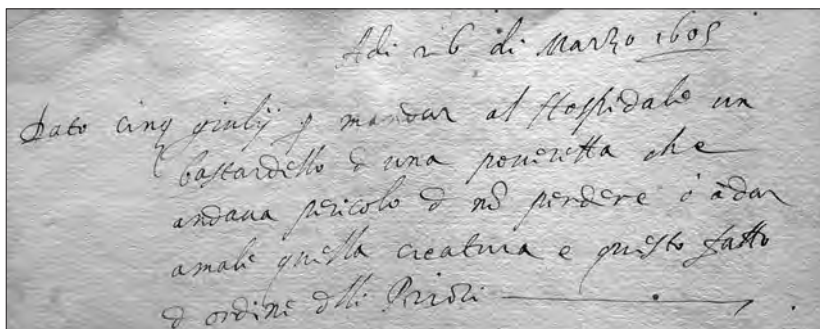 Adi 26 di Marzo 1605
Dato cinq giulij p mandar al Hospidale un
bastardello d una poueretta che
andaua pericolo d nõ perdere o ãdar
amale questa creatura e questo fatto
d ordine dlli